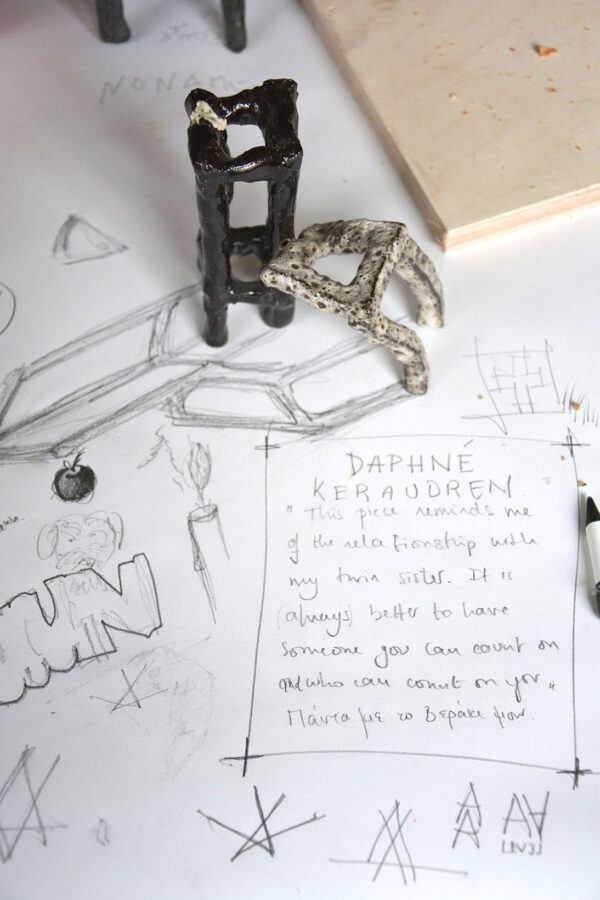 NONAM
DAPHNÉ
KERAUDREN
"This piece reminds me
of the relationship with
my twin sister. It is
(always) better to have
someone you can count on
and who can count on you"
Πάντα με το Βεράκι μου